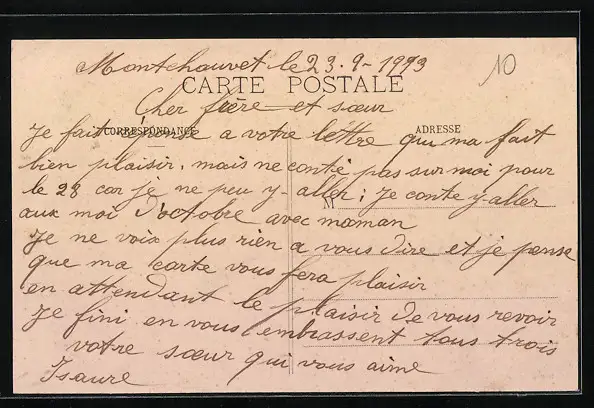 Montchauvet le 23-9-1993
10
CARTE POSTALE
Cher frère et sœur
CORRESPONDANCE
ADRESSE
Je fait réponse a votre lettre qui ma fait
bien plaisir, mais ne conté pas sur moi pour
le 28 car je ne peu y-aller; je conte y-aller
M
aux moi d'octobre avec maman
Je ne voix plus rien a vous dire et je pense
que ma carte vous fera plaisir
en attendant le plaisir de vous revoir
Je fini en vous embrassent tous trois
votre sœur qui vous aime
Isaure